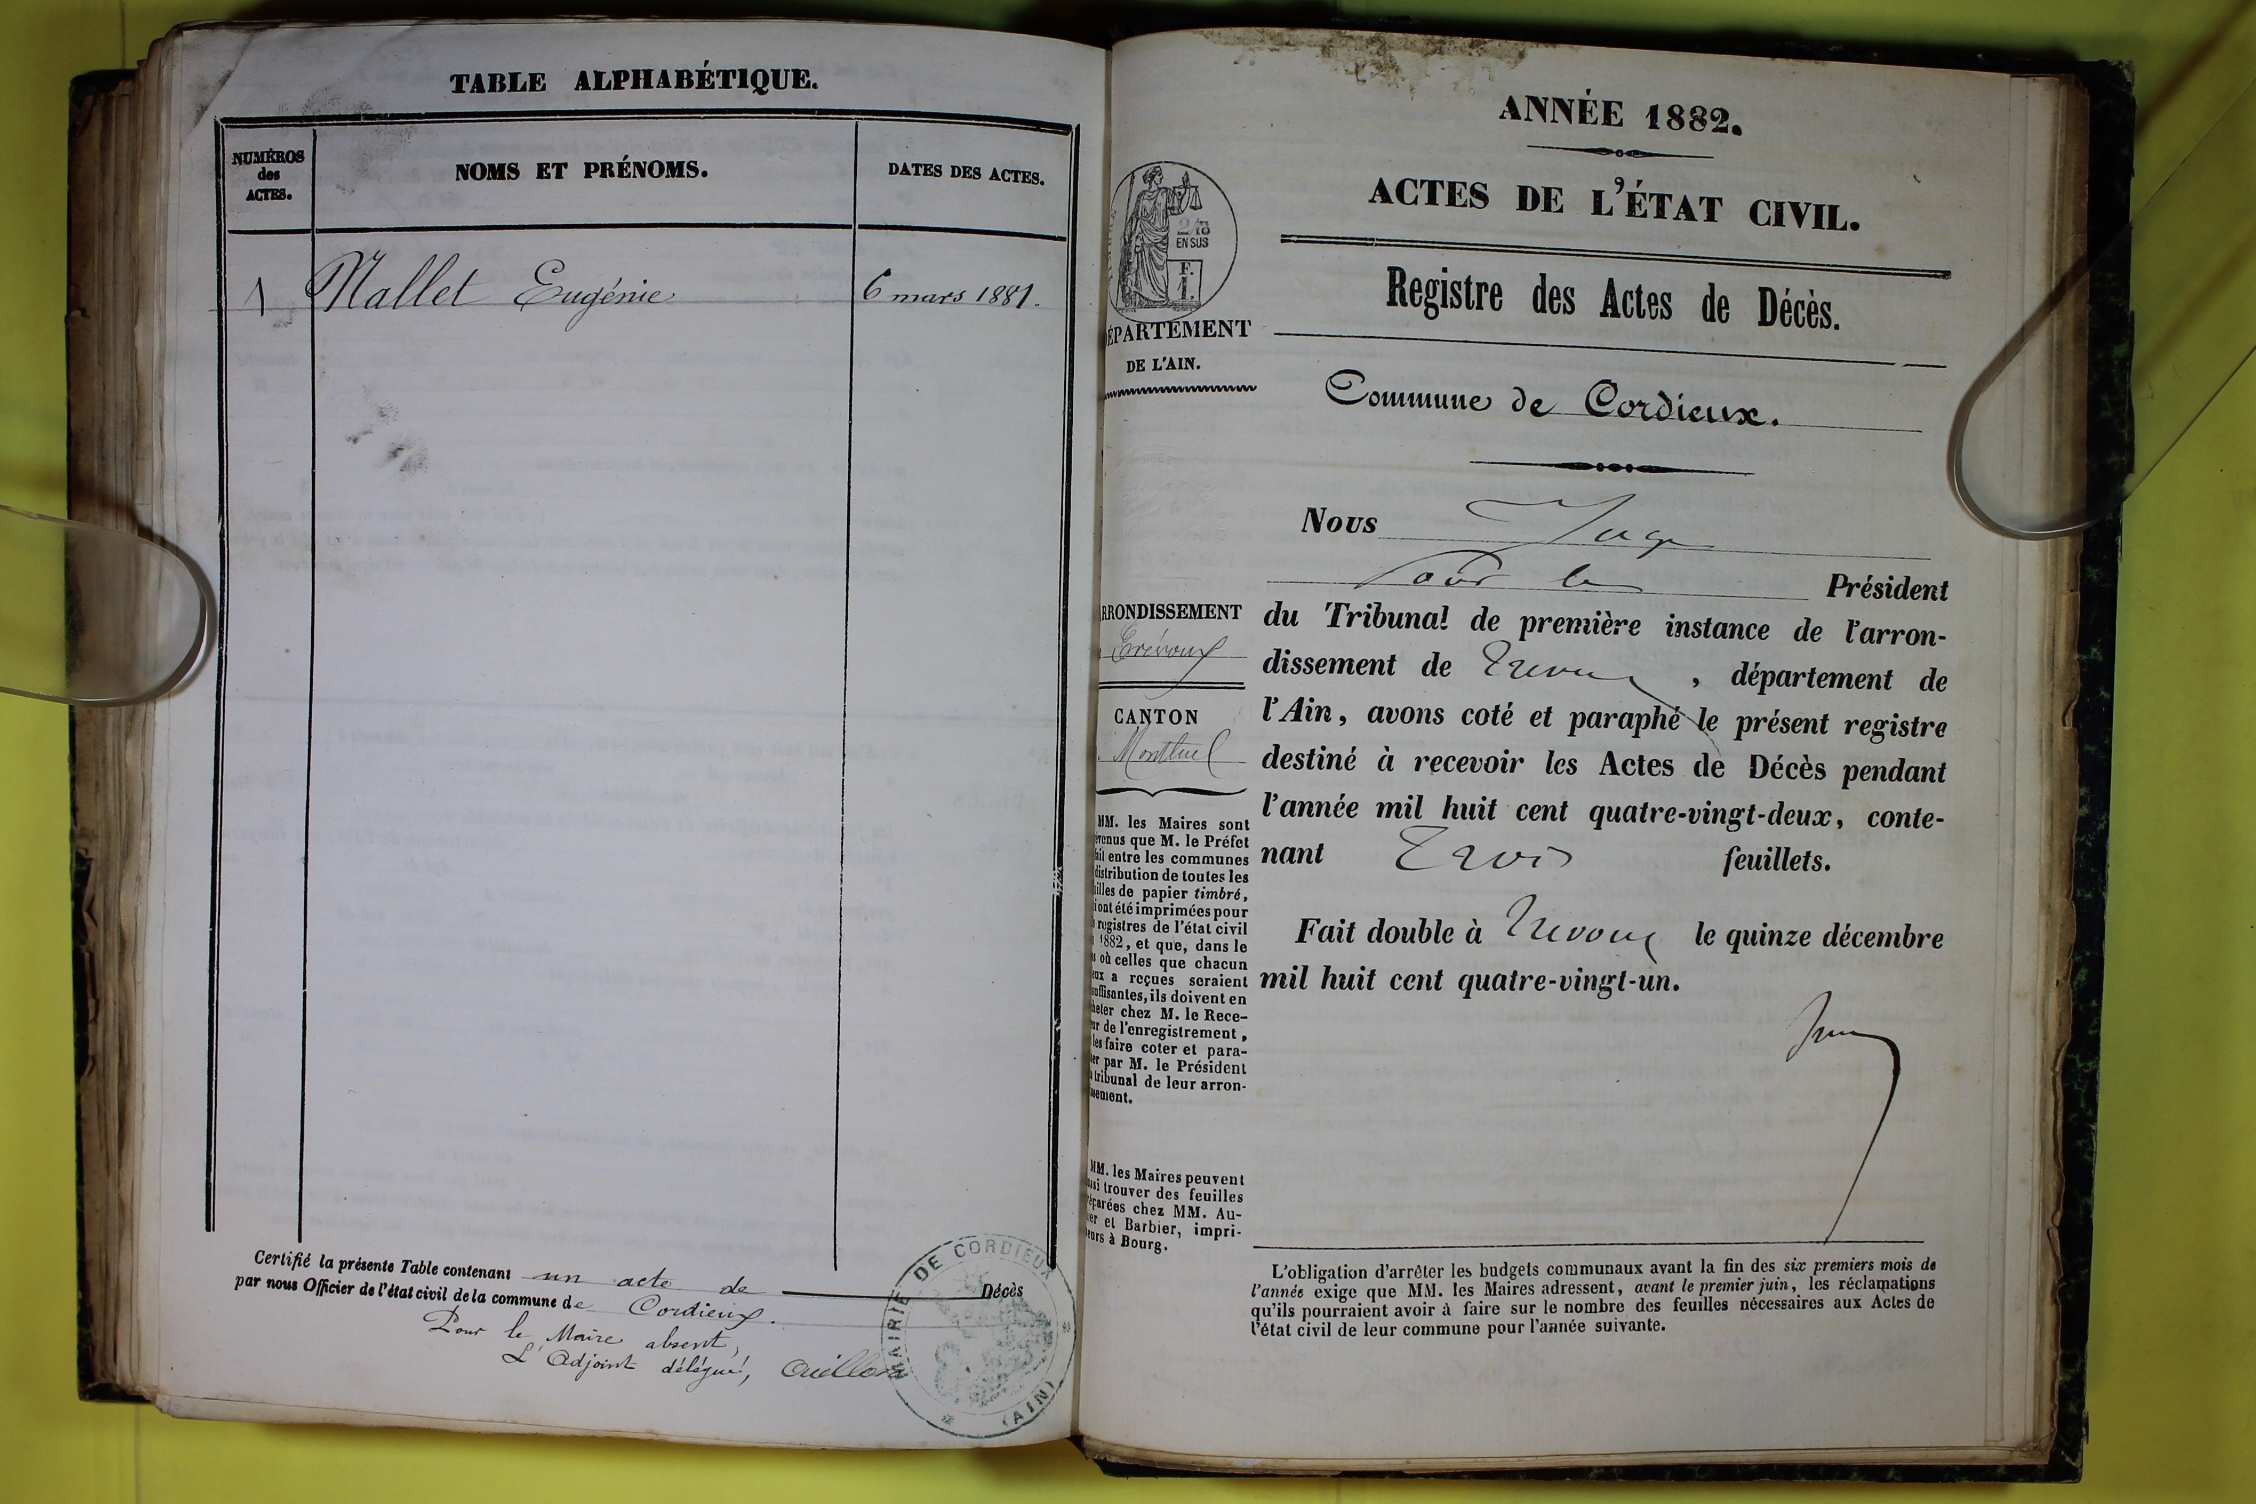 TABLE ALPHABÉTIQUE.
NUMÉROS
des
ACTES.
NOMS ET PRÉNOMS.
DATES DES ACTES.
1 Mallet Eugénie 6 mars 1881.
Certifié la présente Table contenant un acte de Décès
par nous Officier de l'état civil de la commune de Cordieux.
Pour le Maire absent,
L'Adjoint délégué,
MAIRIE DE CORDIEUX
(AIN)
ANNÉE 1882.
ACTES DE L'ÉTAT CIVIL.
2/10
EN SUS
F.
1.
ÉPARTEMENT
DE L'AIN.
Registre des Actes de Décès.
Commune de Cordieux.
RRONDISSEMENT
Trévoux
CANTON
Montluel
MM. les Maires sont
évenus que M. le Préfet
ait entre les communes
distribution de toutes les
uilles de papier timbré,
i ont été imprimées pour
s registres de l'état civil
1882, et que, dans le
s où celles que chacun
eux a reçues seraient
suffisantes, ils doivent en
heter chez M. le Rece-
ur de l'enregistrement,
les faire coter et para-
er par M. le Président
u tribunal de leur arron-
ssement.
MM. les Maires peuvent
ussi trouver des feuilles
réparées chez MM. Au-
ier et Barbier, impri-
eurs à Bourg.
Nous Juge
Pour le Président
du Tribunal de première instance de l'arron-
dissement de Trévoux, département de
l'Ain, avons coté et paraphé le présent registre
destiné à recevoir les Actes de Décès pendant
l'année mil huit cent quatre-vingt-deux, conte-
nant Trois feuillets.
Fait double à Trévoux le quinze décembre
mil huit cent quatre-vingt-un.
L'obligation d'arrêter les budgets communaux avant la fin des six premiers mois de
l'année exige que MM. les Maires adressent, avant le premier juin, les réclamations
qu'ils pourraient avoir à faire sur le nombre des feuilles nécessaires aux Actes de
l'état civil de leur commune pour l'année suivante.